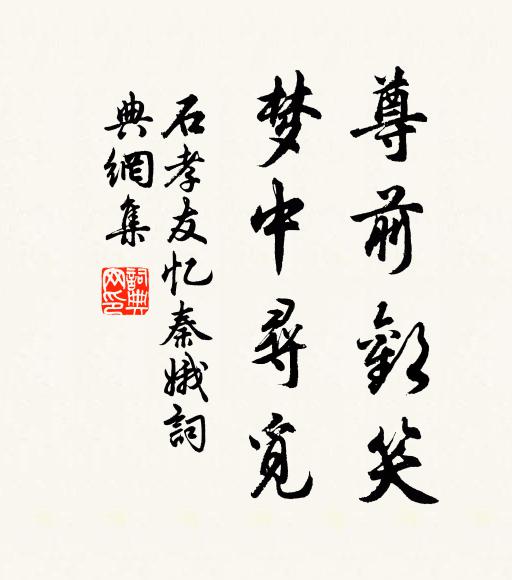 尊前歡笑
梦中尋覓
石孝友忆秦娥詞
典網集
詞典
网印